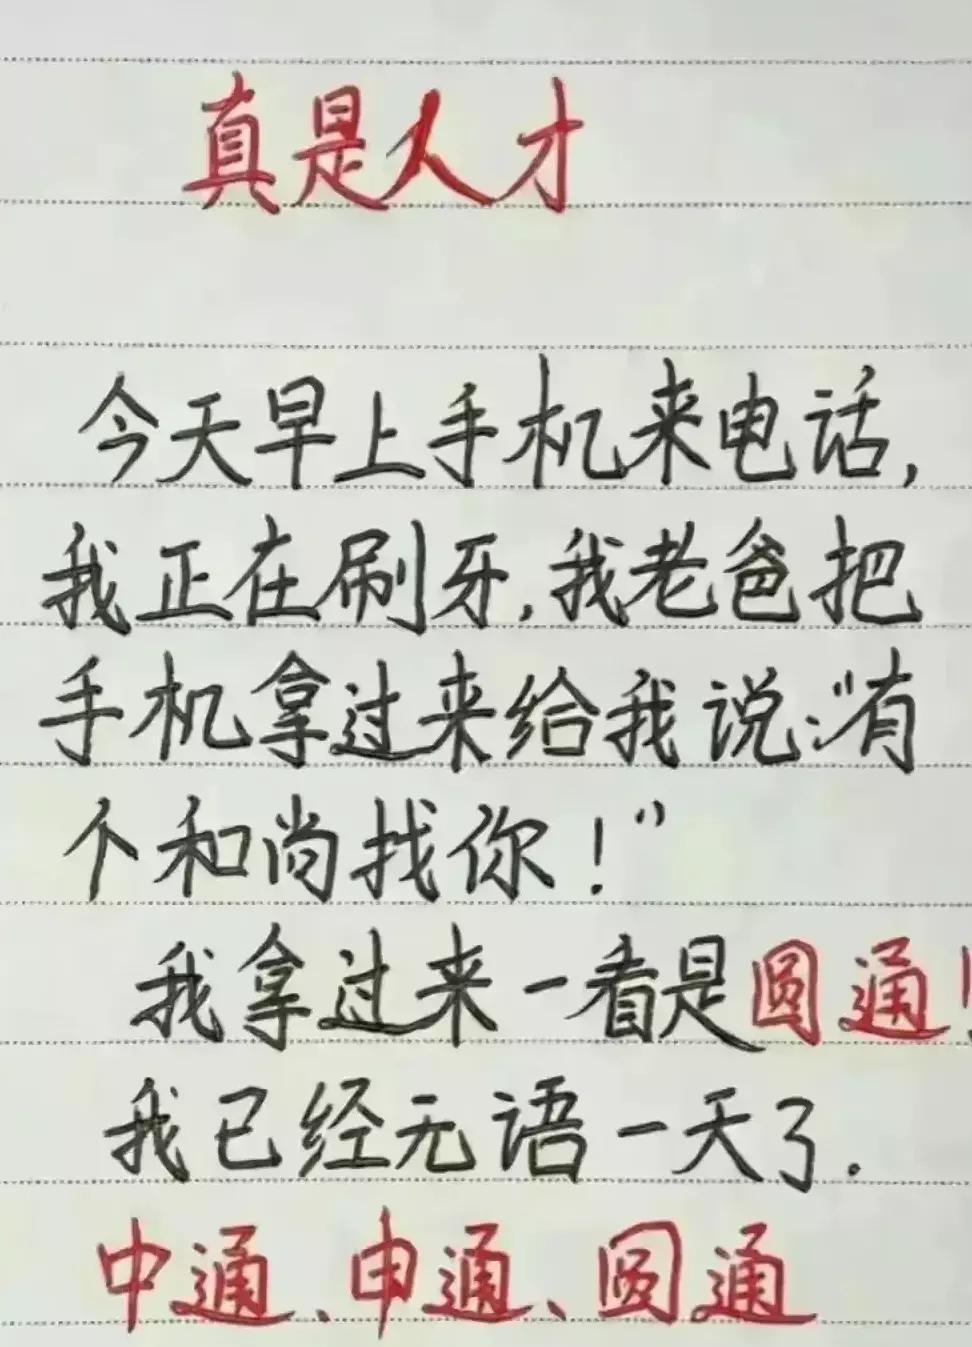 真是人才
今天早上手机来电话,
我正在刷牙,我老爸把
手机拿过来给我说:"有
个和尚找你!"
我拿过来一看是圆通!
我已经无语一天了.
中通、申通、圆通